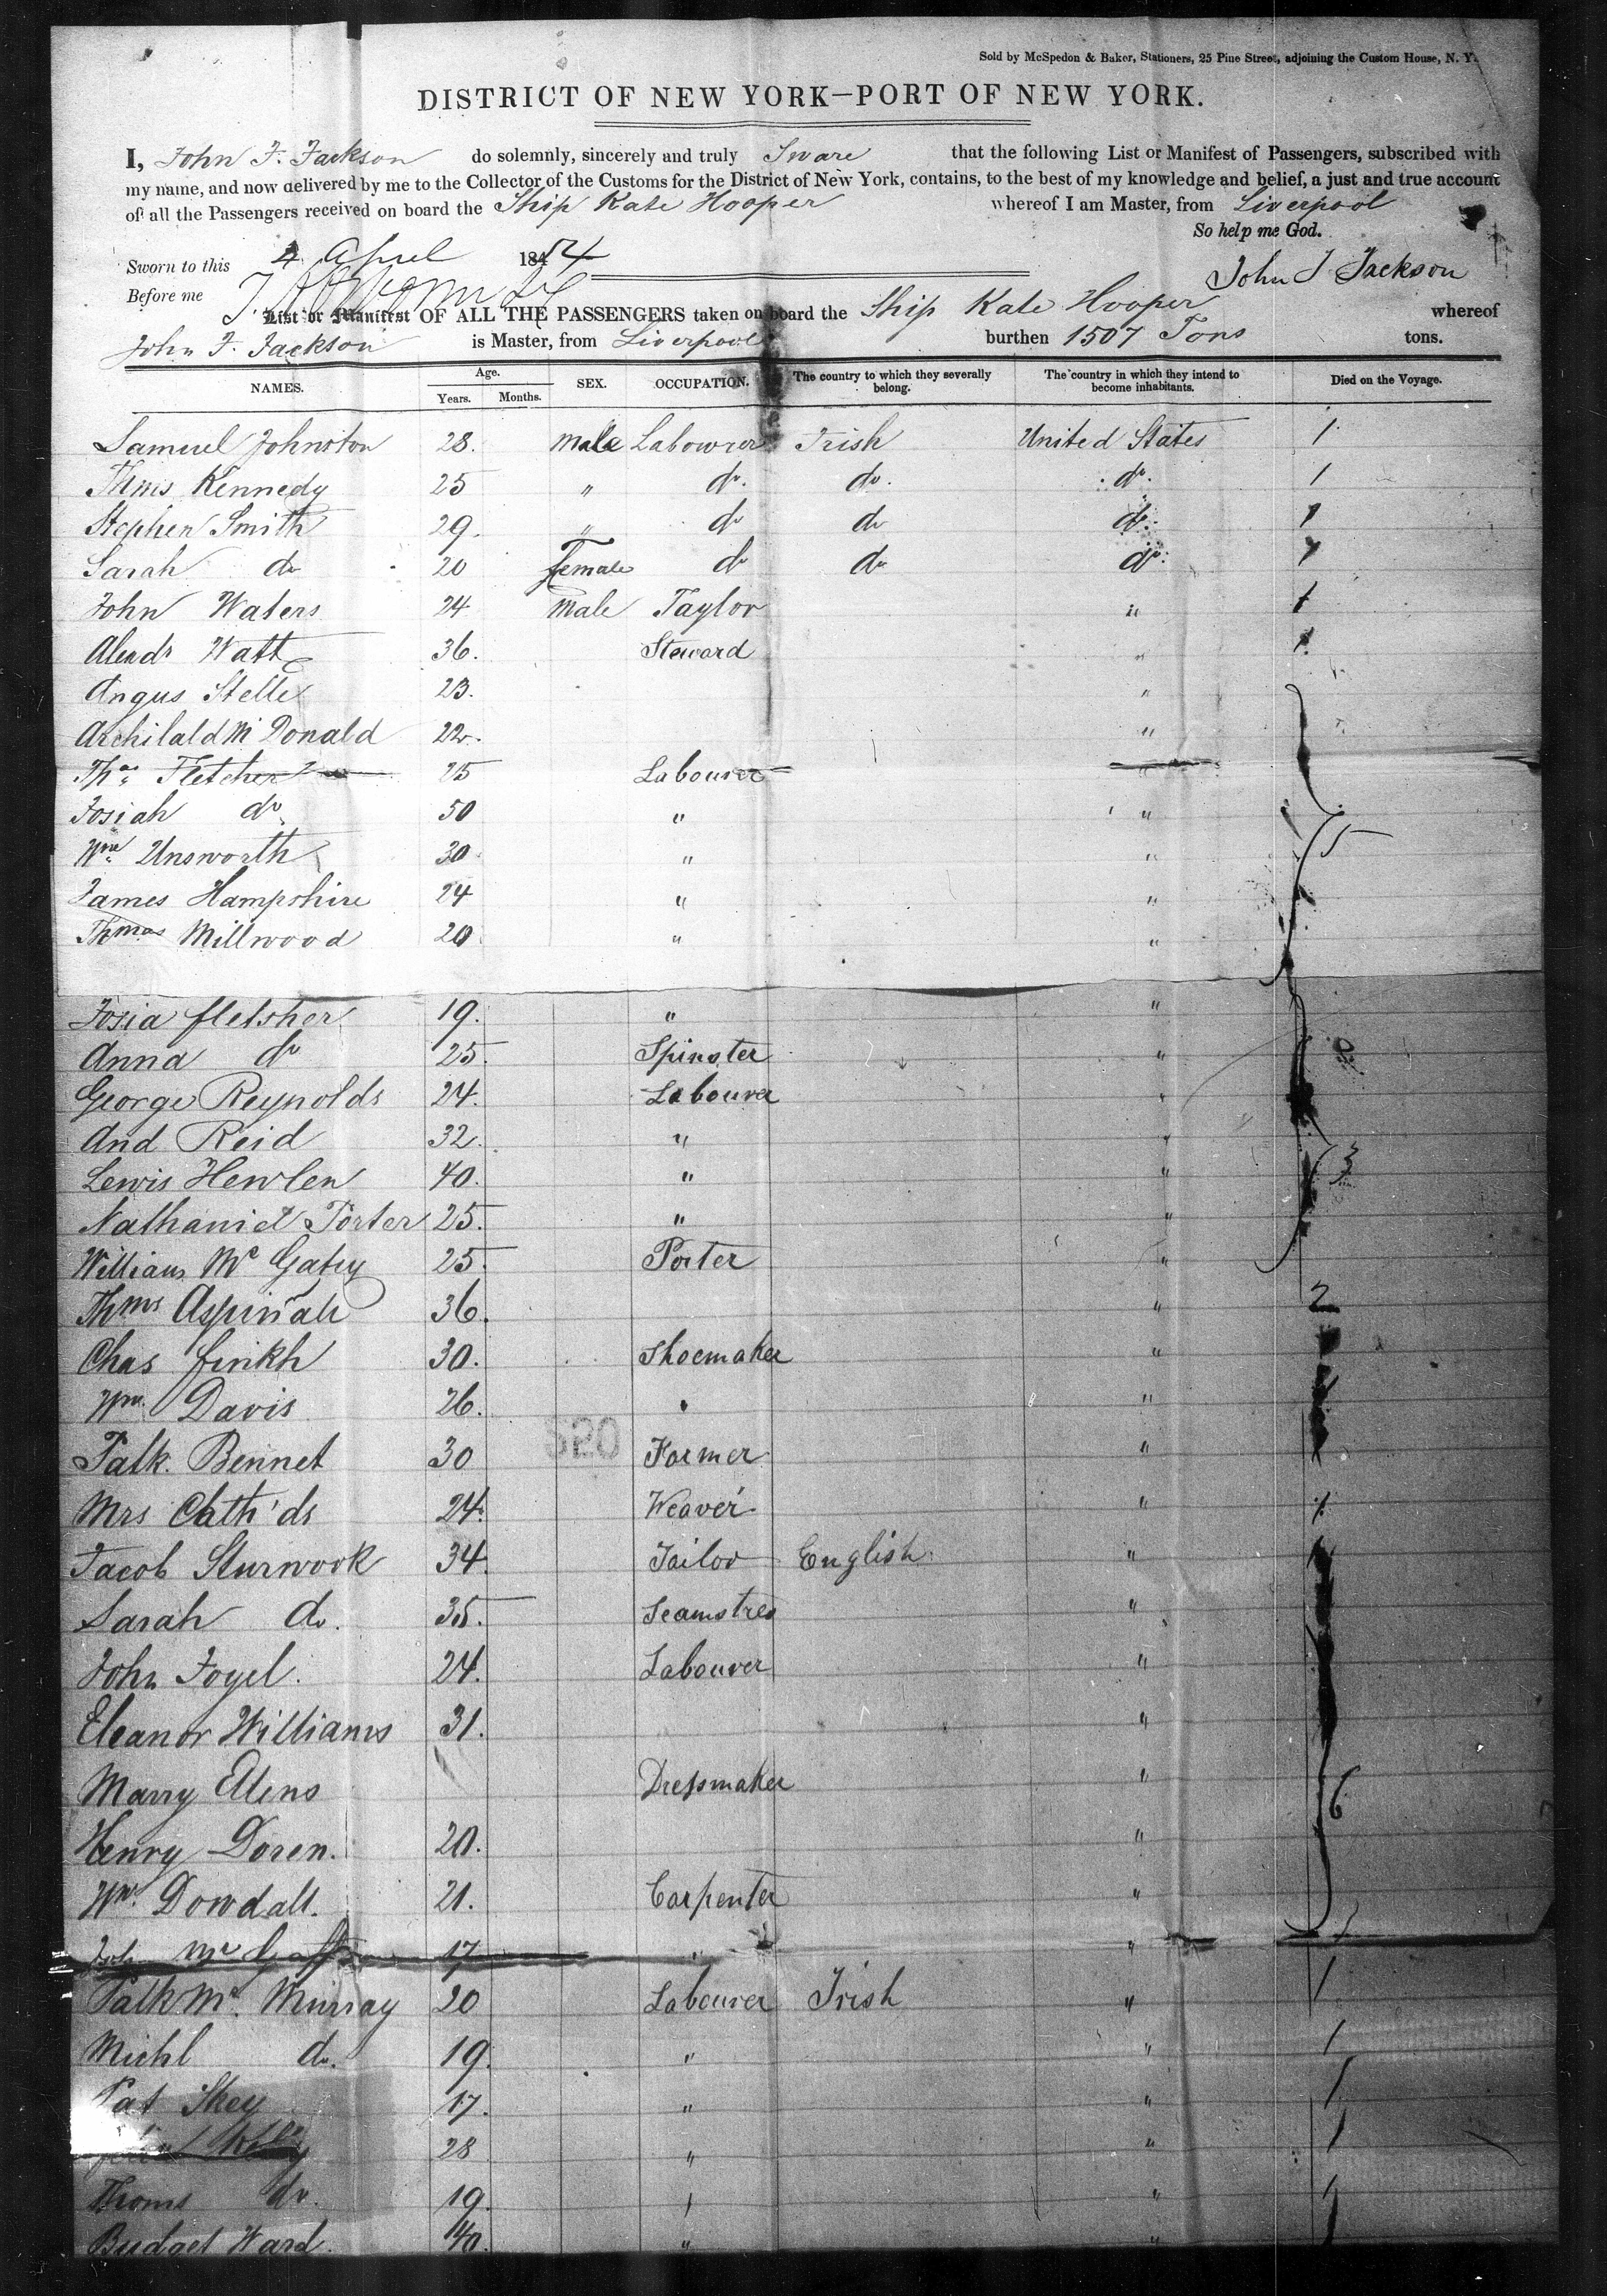 Sold by McSpedon & Baker, Stationers, 25 Pine Street, adjoining the Custom House, N. Y.
DISTRICT OF NEW YORK—PORT OF NEW YORK.
I, John F. Jackson do solemnly, sincerely and truly Sware that the following List or Manifest of Passengers, subscribed with
my name, and now delivered by me to the Collector of the Customs for the District of New York, contains, to the best of my knowledge and belief, a just and true account
of all the Passengers received on board the Ship Kate Hooper whereof I am Master, from Liverpool
So help me God.
Sworn to this 4 April 1854 John J Jackson
Before me
List or Manifest OF ALL THE PASSENGERS taken on board the Ship Kate Hooper whereof
John F. Jackson is Master, from Liverpool burthen 1507 Tons tons.
NAMES. Age. Years. Months. SEX. OCCUPATION. The country to which they severally belong. The country in which they intend to become inhabitants. Died on the Voyage.
Samuel Johnston 28. male Labowrer Irish United States 1
Thms Kennedy 25 " do. do. do. 1
Stephen Smith 29. " do do do. 1
Sarah do 20 female do do do. 1
John Waters 24 male Taylor " 1
Alexdr Watt 36. Steward " 1
Angus Stelle 23. "
Archilald Mc Donald 22. "
Thos Fletcher 25 Labourer "
Josiah do 50 " " 5
Wm Unsworth 30. " "
James Hampshire 24 " "
Thmas Millwood 20. " "
Josia fletsher 19. " "
Anna do 25. Spinster "
George Reynolds 24. Labourer "
And Reid 32. " "
Lewis Hewlen 40. " " 3
Nathaniel Porter 25. " "
William Mc Gahy 25. Porter "
Thms Aspinall 36. " 2
Chas finkh 30. Shoemaker "
Wm. Davis 26. "
Patk. Bennet 30 Farmer "
Mrs Cath'ds 24. Weaver " 1.
Jacob Sturwook 34. Tailor English "
Sarah do. 35. Seamstres "
John Fogel. 24. Labourer "
Eleanor Williams 31. "
Marry Ellens Dressmaker " 6
Henry Doren. 20. "
Wm. Dowdall. 21. Carpenter "
17 " "
Patk Mc. Murray 20 Labourer Irish " 1
Michl do. 19. " " 1
Pat Skey 17. " " 1
Kelly 28 " " 1
Thoms do. 19. " 1
Budget Ward. 40. " " 1